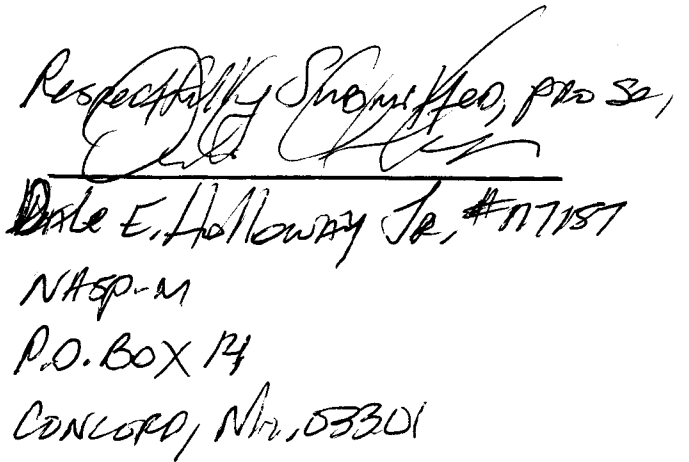 Respectfully Submitted, pro se,
Dale E. Holloway Jr, #117157
NHSP-M
P.O. BOX 14
CONCORD, NH, 03301